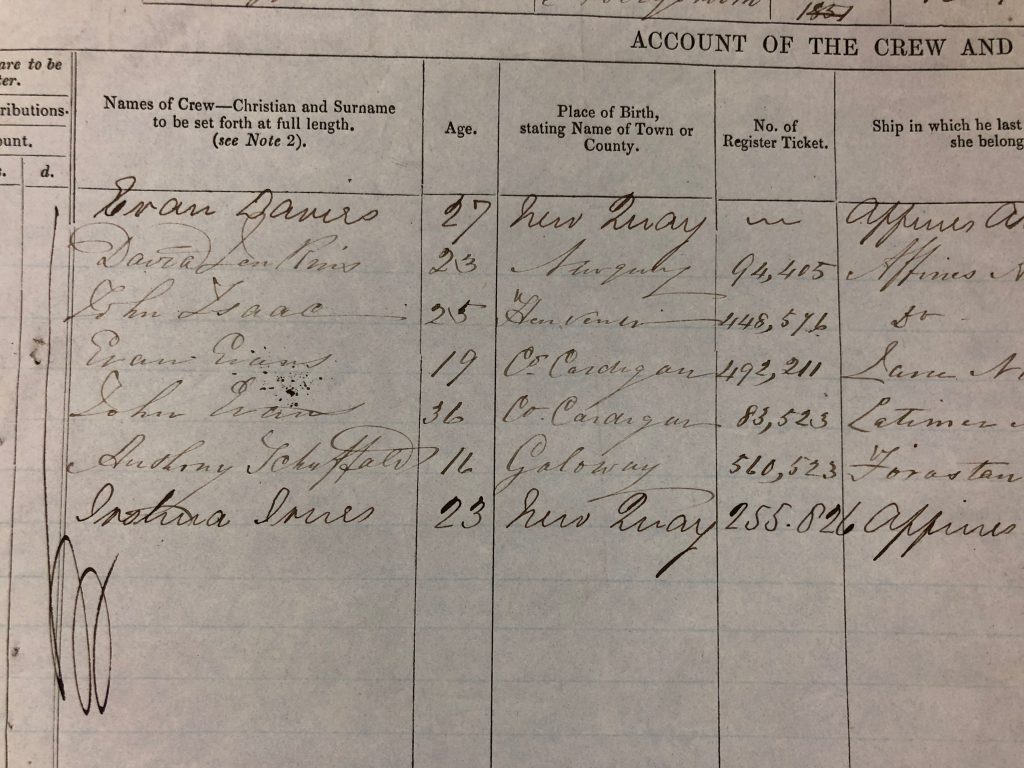 1851
ACCOUNT OF THE CREW AND
are to be
ter.
ributions.
ount.
s. d.
Names of Crew—Christian and Surname
to be set forth at full length.
(see Note 2).
Age.
Place of Birth,
stating Name of Town or
County.
No. of
Register Ticket.
Ship in which he last
she belong
Evan Davies 27 New Quay Affines
David Jenkins 23 Newquay 94,405 Affines
John Isaac 25 448,576 Do
Evan Evans 19 Co Cardigan 492,211 Jane
John Evan 36 Co Cardigan 83,523 Latimer
16 Galoway 560,523
23 New Quay 255.826 Affines